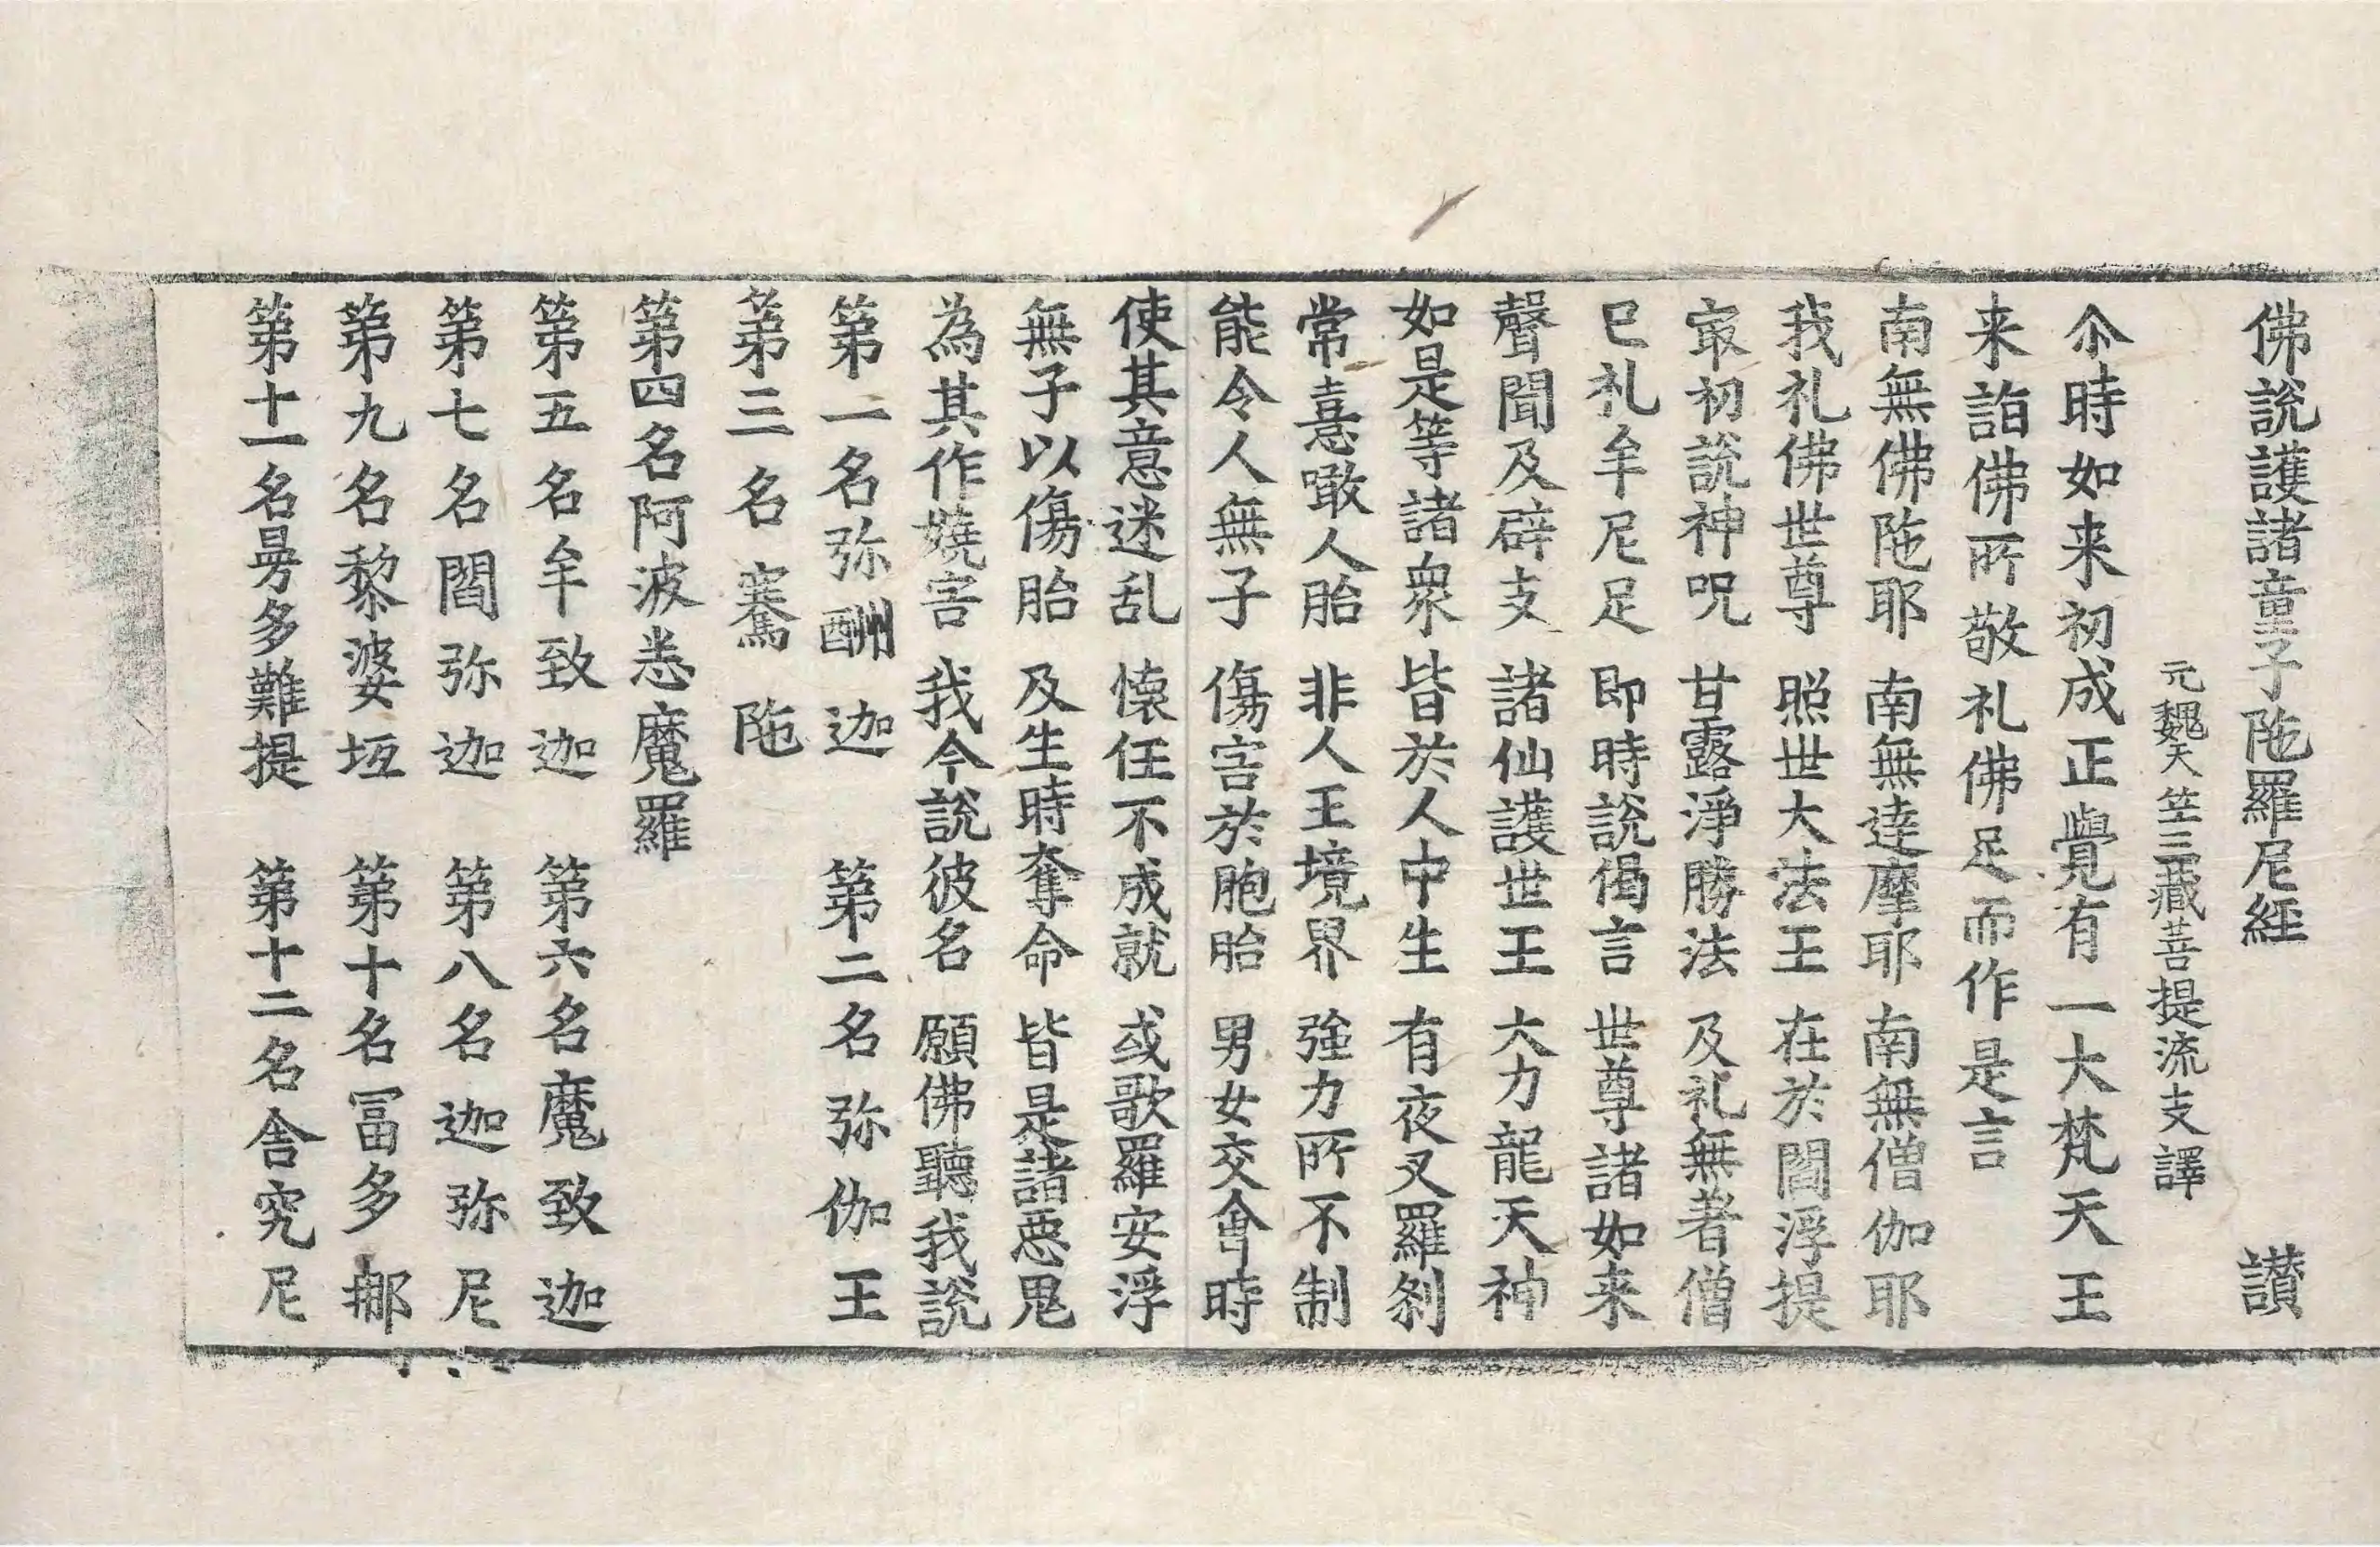 佛說護諸童子陁羅尼經 讃
元魏天竺三藏菩提流支譯
尒時如来初成正覺有一大梵天王
来詣佛所敬礼佛足而作是言
南無佛陁耶 南無達摩耶 南無僧伽耶
我礼佛世尊 照世大法王 在於閻浮提
㝡初說神呪 甘露淨勝法 及礼無著僧
已礼牟尼足 即時說偈言 世尊諸如来
聲聞及辟支 諸仙護世王 大力龍天神
如是等諸衆 皆於人中生 有夜叉羅剎
常憙噉人胎 非人王境界 強力所不制
能令人無子 傷害於胞胎 男女交會時
使其意迷乱 懷任不成就 或歌羅安浮
無子以傷胎 及生時奪命 皆是諸惡鬼
為其作嬈害 我今說彼名 願佛聽我說
第一名弥酬迦 第二名弥伽王
第三名騫陁
第四名阿波悉魔羅
第五名牟致迦 第六名魔致迦
第七名閻弥迦 第八名迦弥尼
第九名黎婆坻 第十名冨多那
第十一名曼多難提 第十二名舎究尼